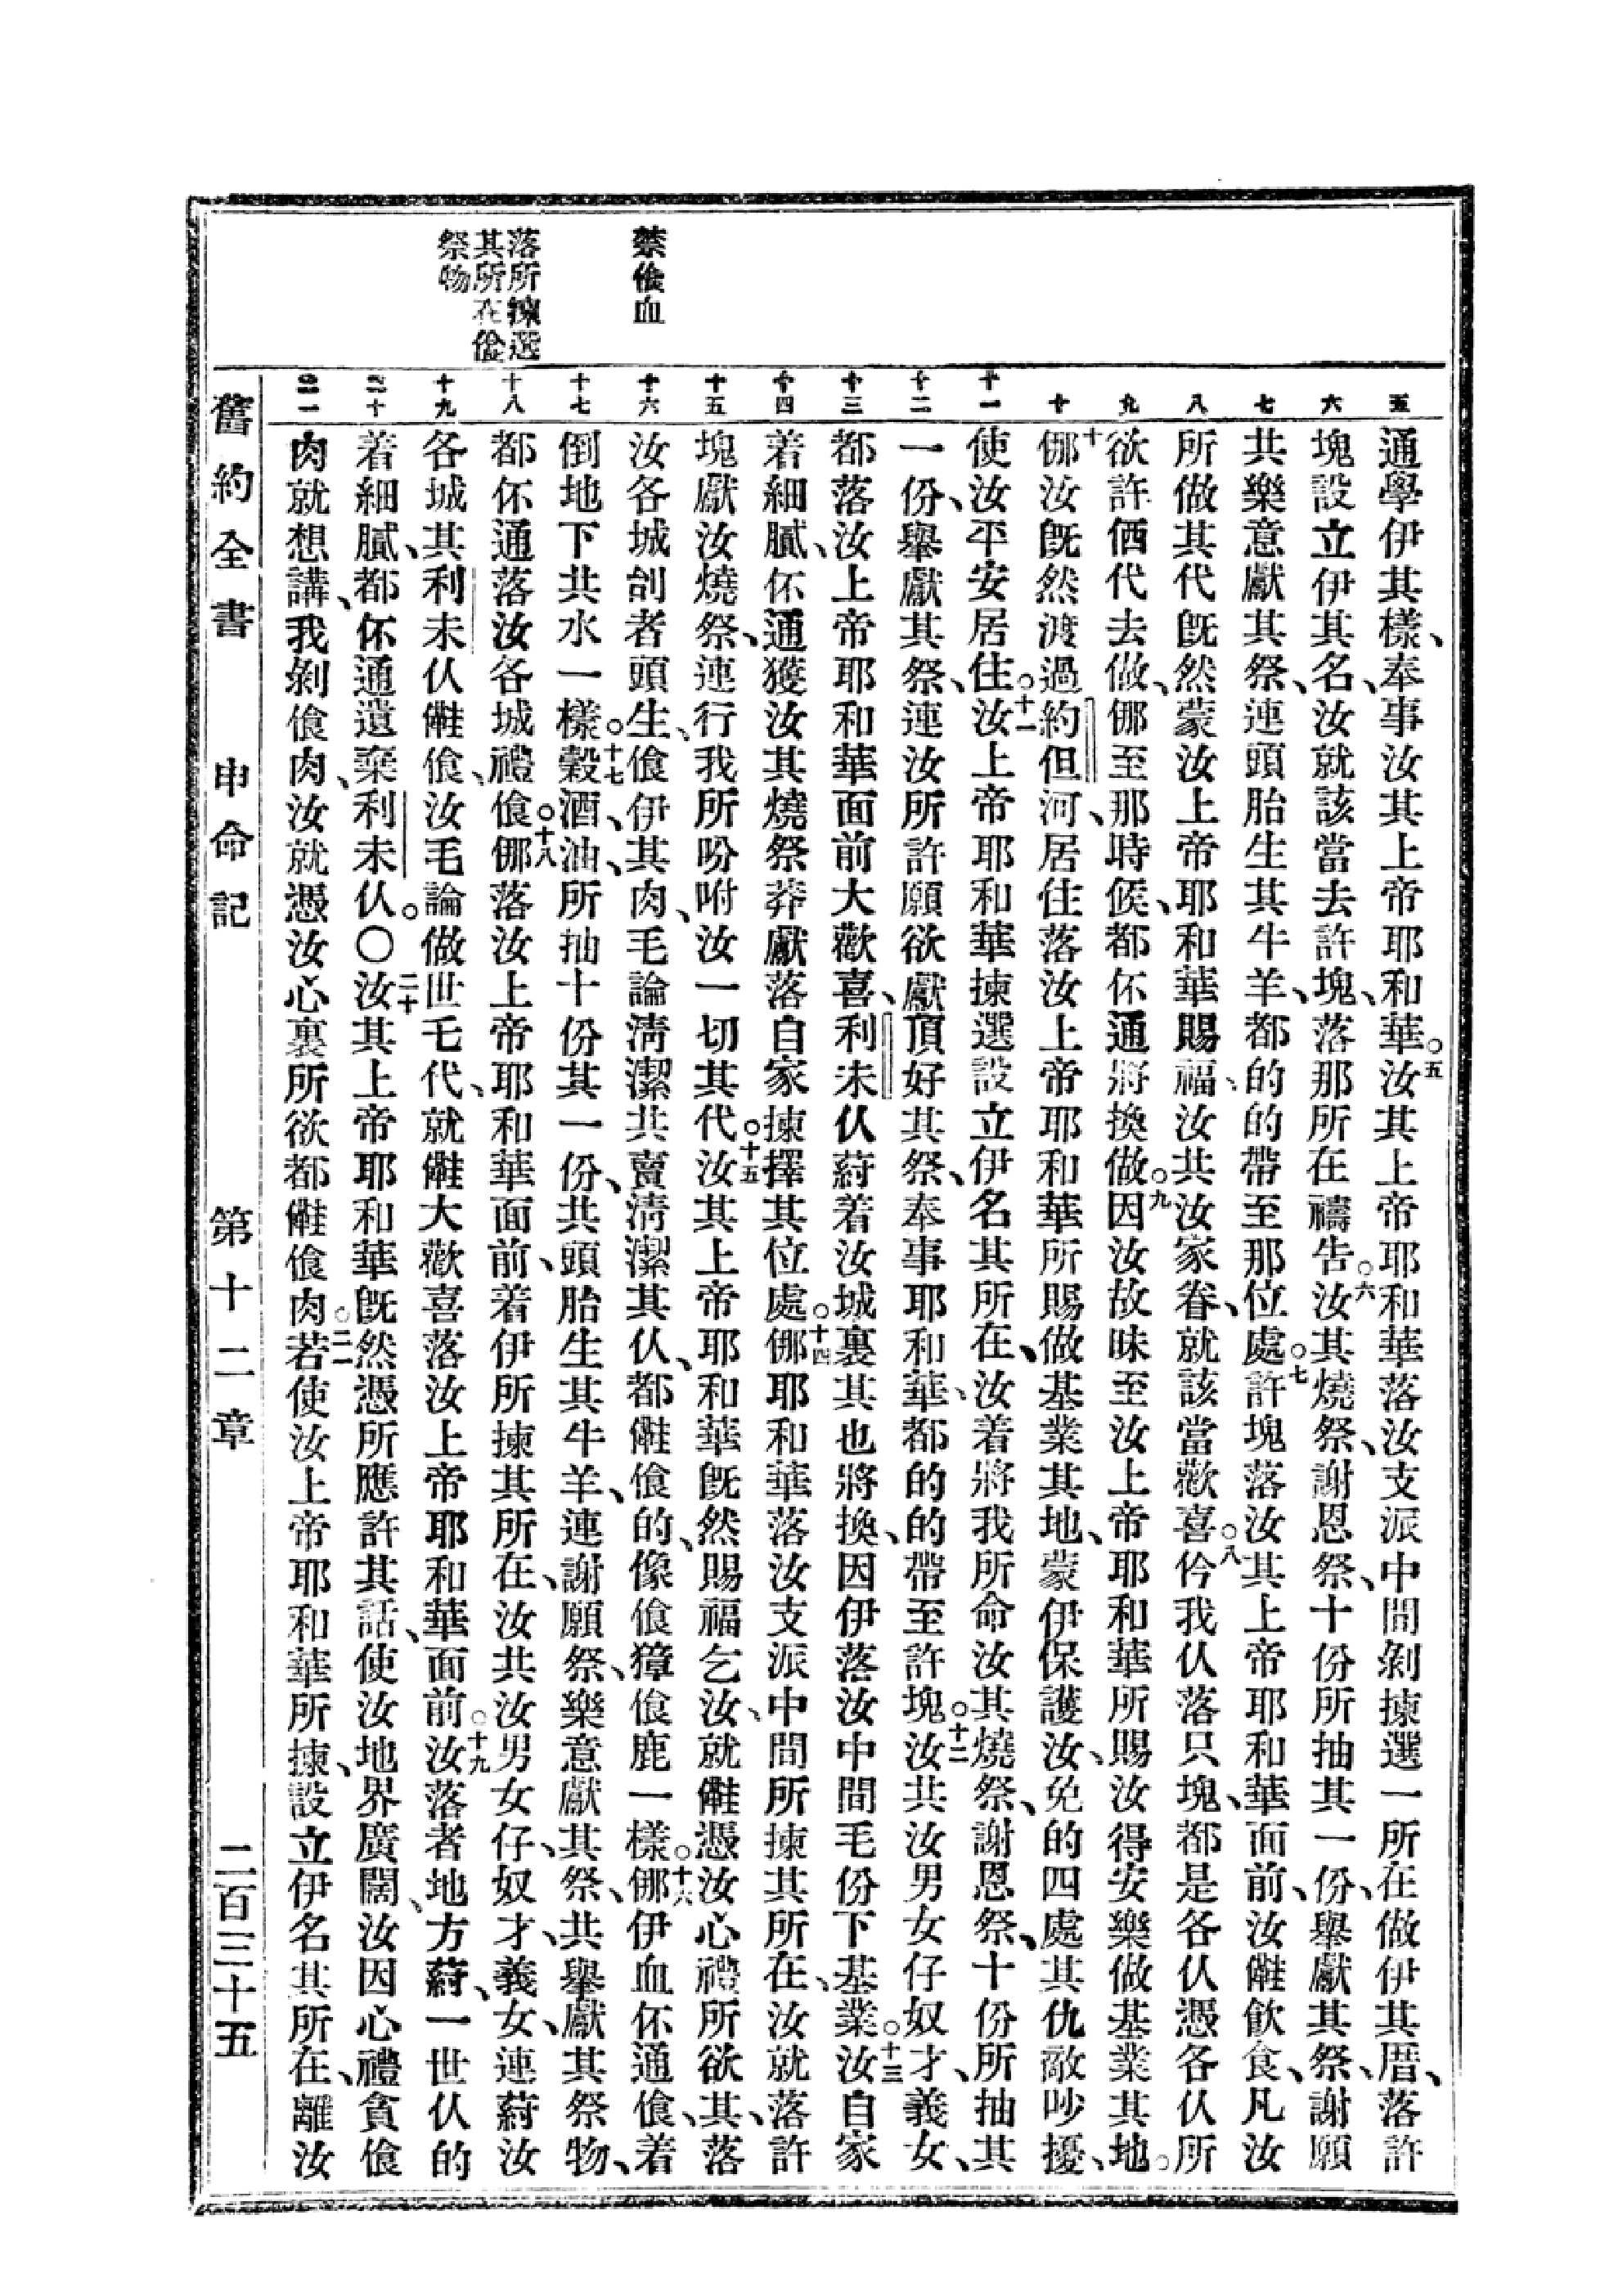 禁𠊧血
落所揀選
其所在𠊧
祭物
五
六
七
八
九
十
十一
十二
十三
十四
十五
十六
十七
十八
十九
二十
二一
通學伊其樣、奉事汝其上帝耶和華。五汝其上帝耶和華落汝支派中間剝揀選一所在做伊其厝、落許
塊設立伊其名、汝就該當去許塊、落那所在禱告。六汝其燒祭、謝恩祭、十份所抽其一份、舉獻其祭、謝願
共樂意獻其祭、連頭胎生其牛羊、都的的帶至那位處。七許塊落汝其上帝耶和華面前、汝儶飲食、凡汝
所做其代旣然蒙汝上帝耶和華賜福、汝共汝家眷、就該當歡喜。八仱我仈落只塊、都是各仈憑各仈所
欲許㑚代去做、㑚至那時候、都伓通將換做。九因汝故昧至汝上帝耶和華所賜汝得安樂做基業其地。
十㑚汝旣然渡過約但河、居住落汝上帝耶和華所賜做基業其地、蒙伊保護汝、免的四處其仇敵吵擾、
使汝平安居住。十一汝上帝耶和華揀選設立伊名其所在、汝着將我所命汝其燒祭、謝恩祭、十份所抽其
一份、舉獻其祭、連汝所許願欲獻頂好其祭、奉事耶和華、都的的帶至許塊。十二汝共汝男女仔奴才、義女、
都落汝上帝耶和華面前大歡喜、利未仈䓁着汝城裏其也將換、因伊落汝中間毛份下基業。十三汝自家
着細膩、伓通獲汝其燒祭莽獻落自家揀擇其位處。十四㑚耶和華落汝支派中間所揀其所在、汝就落許
塊獻汝燒祭、連行我所吩咐汝一切其代。十五汝其上帝耶和華旣然賜福乞汝、就儶憑汝心禮所欲其、落
汝各城刣者頭生、𠊧伊其肉、毛論淸潔共賣淸潔其仈、都儶𠊧的、像𠊧獐𠊧鹿一樣。十六㑚伊血伓通𠊧、着
倒地下共水一樣。十七穀、酒、油、所抽十份其一份、共頭胎生其牛羊、連謝願祭、樂意獻其祭、共舉獻其祭物、
都伓通落汝各城禮𠊧。十八㑚落汝上帝耶和華面前、着伊所揀其所在、汝共汝男女仔、奴才、義女、連䓁汝
各城其利未仈儶𠊧、汝毛論做世毛代、就儶大歡喜落汝上帝耶和華面前。十九汝落者地方䓁、一世仈的
着細膩、都伓通遺棄利未仈。〇二十汝其上帝耶和華旣然憑所應許其話、使汝地界廣闊、汝因心禮貪𠊧
肉就想講、我剝𠊧肉、汝就憑汝心裏所欲都儶𠊧肉。二一若使汝上帝耶和華所揀、設立伊名其所在、離汝
舊約全書　申命記　第十二章　二百三十五